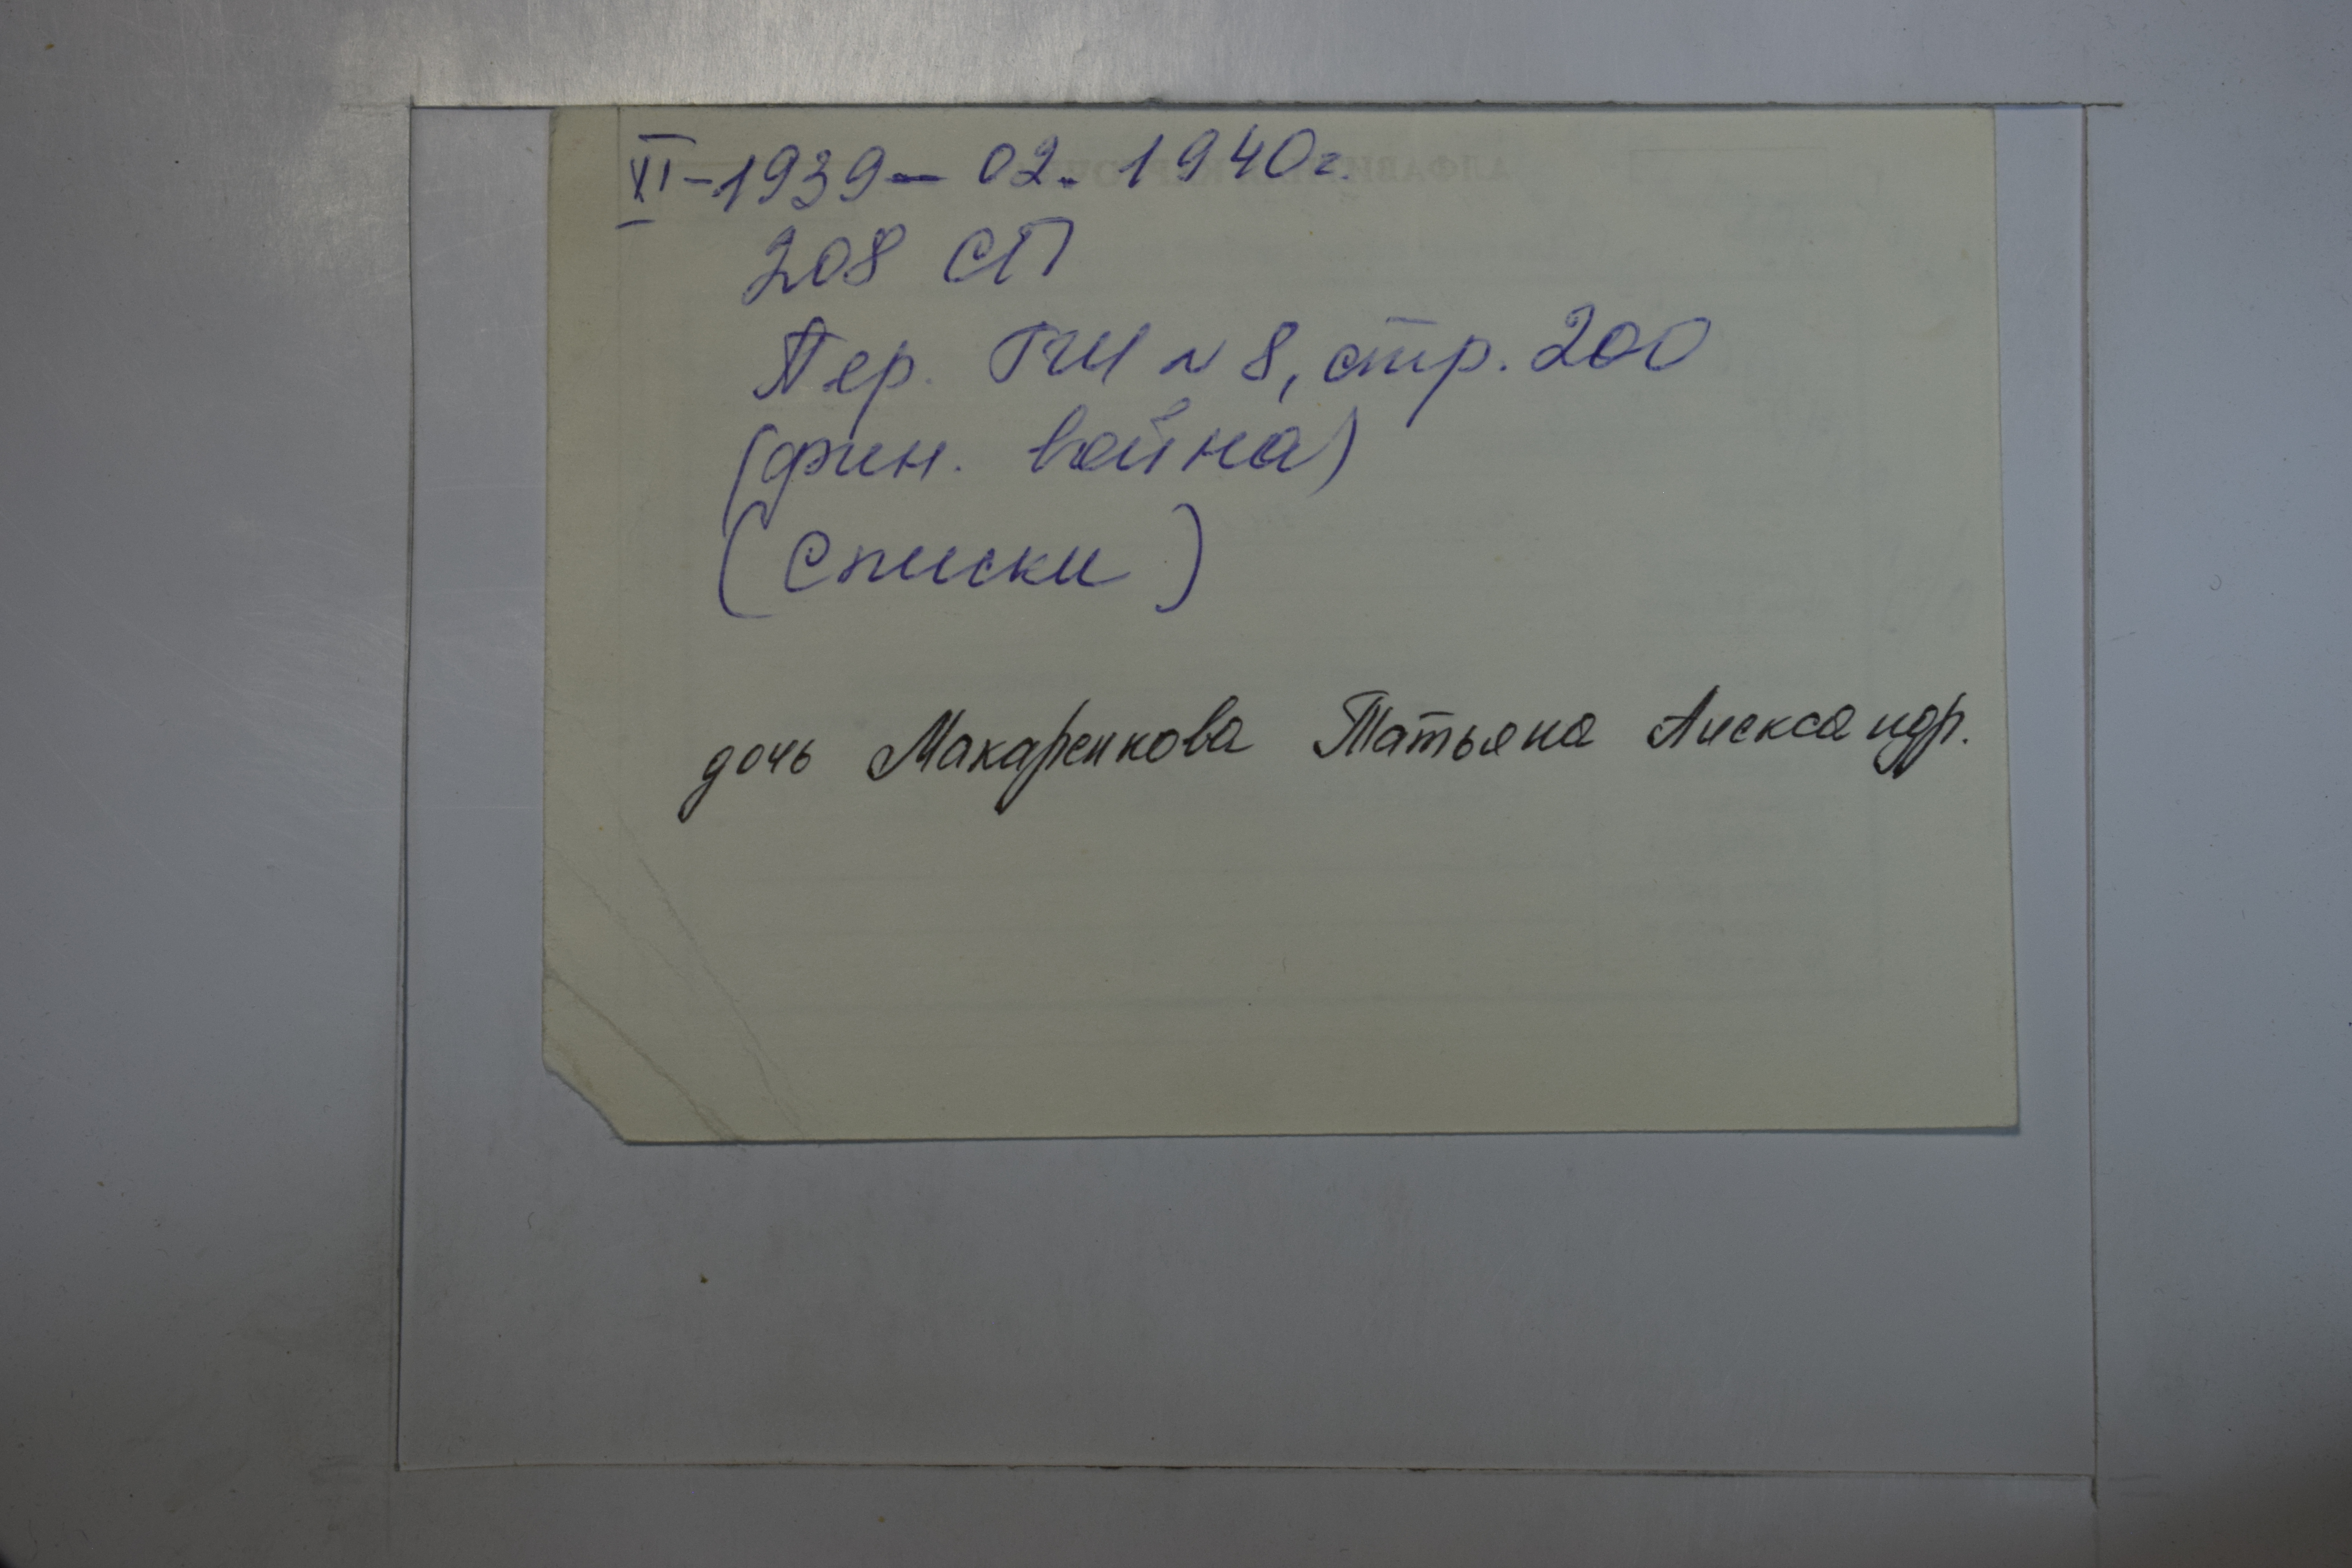 XI-1939 - 02. 1940г.
208 СП
Пер. ГШ № 8, стр. 200
(фин. война)
(Списки)
дочь Макаренкова Татьяна Александр.